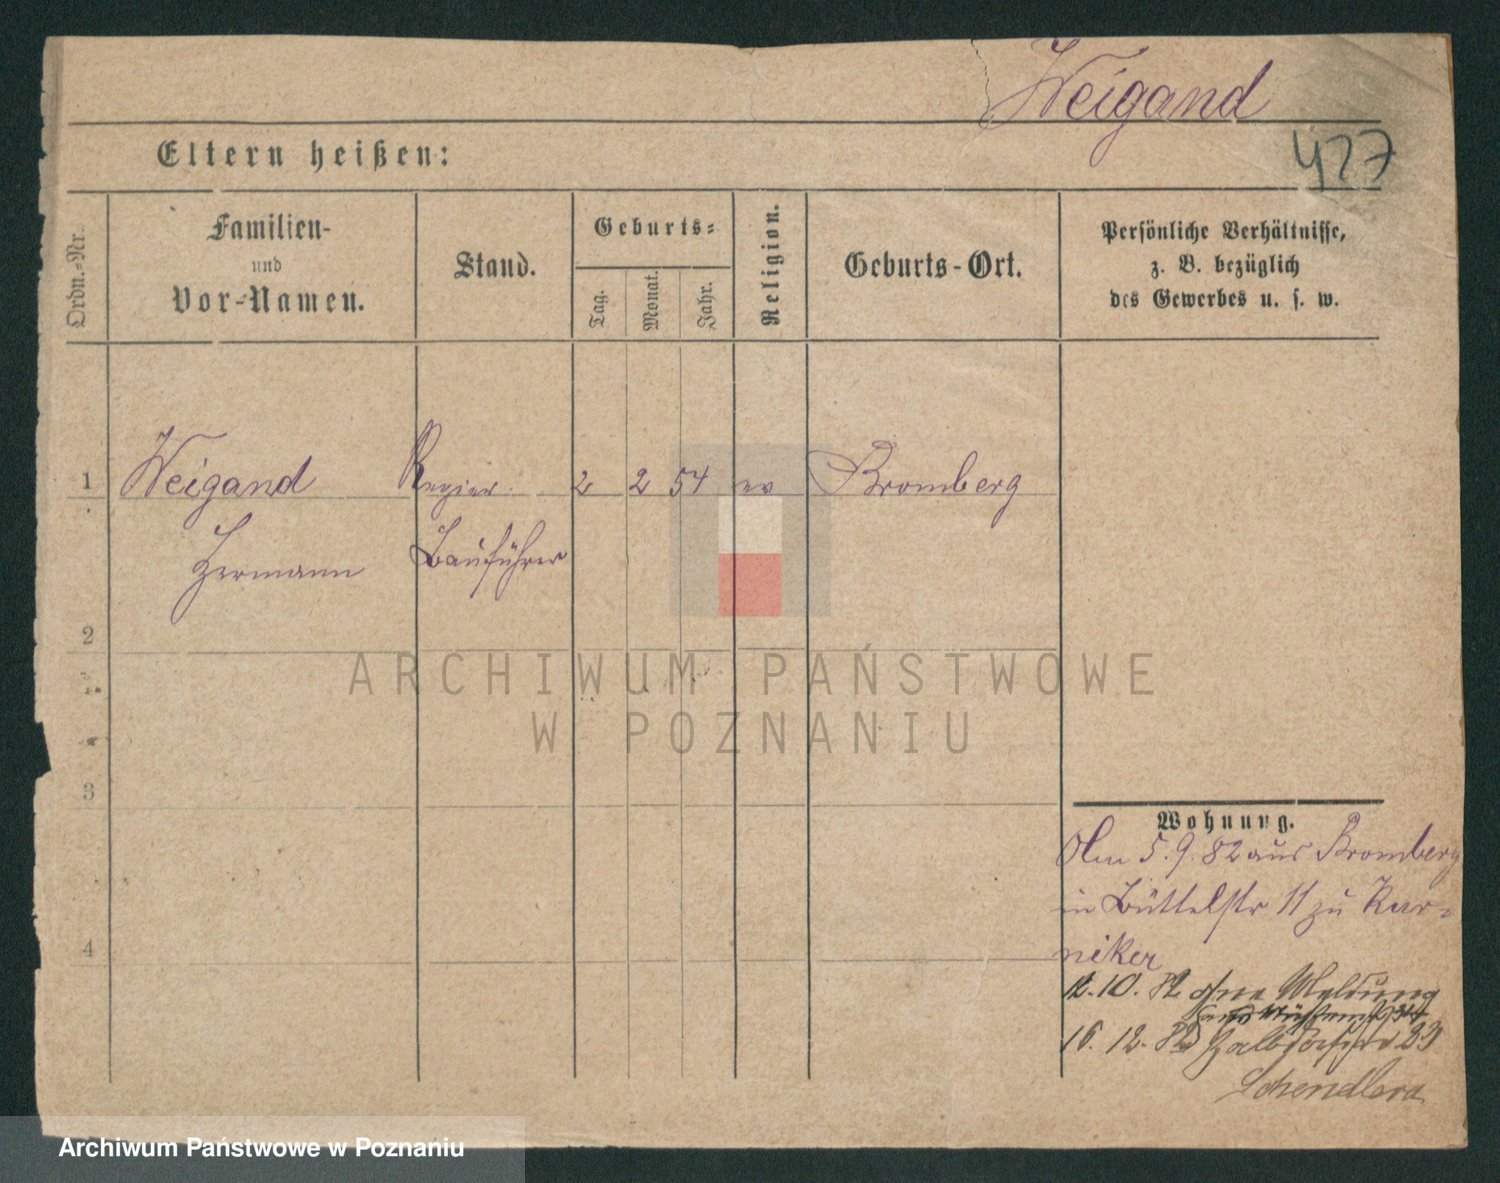 Weigand
427
Eltern heißen:
Ordn.-Nr.
Familien-
und
Vor-Namen.
Stand.
Geburts-
Tag.
Monat.
Jahr.
Religion.
Geburts-Ort.
Persönliche Verhältnisse,
z. B. bezüglich
des Gewerbes u. s. w.
1
Weigand
Regier.
2
2
54
ev
Bromberg
Hermann
Bauführer
2
3
4
Wohnung.
Am 5.9.82 aus Bromberg
in Büttelstr 11 zu Kar-
niker
12.10.82 ohne Meldung
16.12.82 Halbdorfstr 23
ARCHIWUM PAŃSTWOWE
W POZNANIU
Archiwum Państwowe w Poznaniu